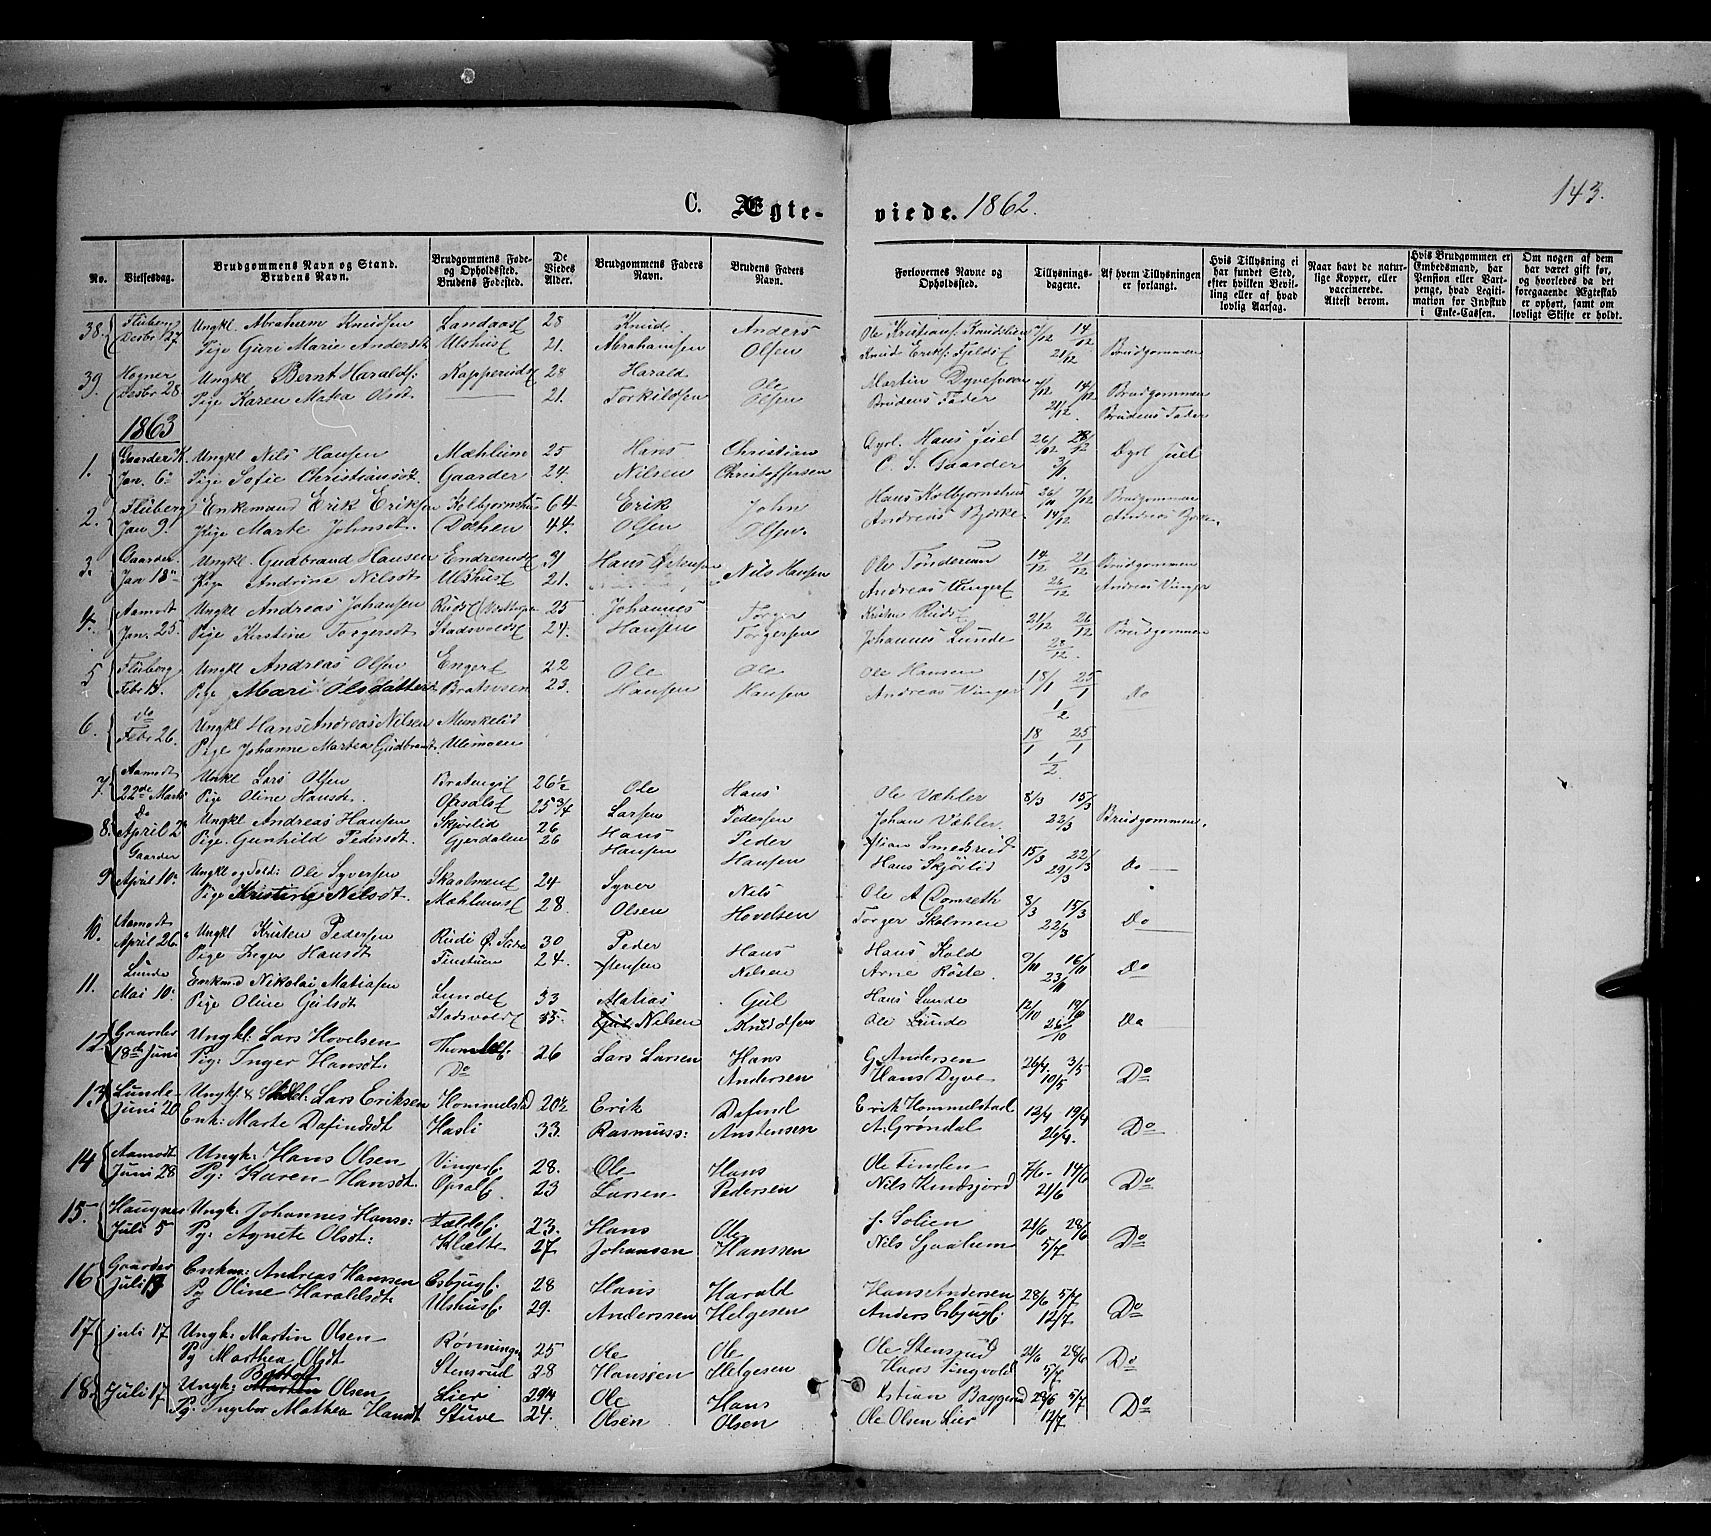 C. Ægteviede. 1862.
143.
No. Vielsesdag. Brudgommens Navn og Stand. Brudens Navn. Brudgommens Føde- og Opholdssted. Brudens Fødested. De Viedes Alder. Brudgommens Faders Navn. Brudens Faders Navn. Forlovernes Navne og Opholdssted. Tillysningsdagene. Af hvem Tillysningen er forlangt. Hvis Tillysning ei har fundet Sted, efter hvilken Bevilling eller af hvad lovlig Aarsag. Naar havt de naturlige Kopper, eller vaccinerede. Attest derom. Hvis Brudgommen er Embedsmand, har Pension eller Vartpenge, hvad Legitimation for Indskud i Enke-Cassen. Om nogen af dem har været gift før, og hvorledes da det foregaaende Ægteskab er ophørt, samt om lovligt Skifte er holdt.
38. Fluberg Ungkl. Abraham Knudsen Landaas 28 Knud Anders Ole Kristians. Knudslien 7/12 14/12
Desbr 27 Pige Guri Marie Andersdt Ulshus 21. Abrahamsen Olsen Knud Eriks. 21/12 Brudgommen
39. Hogner Ungkl Bernt Haralds. Kapperud 28 Harald Ole Martin Dyvesveen 7/12 14/12 Brudgommen
Desbr 28 Pige Karen Mathea Olsdt. 21. Torkildsen Olsen Brudens Fader 21/12 Brudens Fader
1863
1. Gaarder K Ungkl Nils Hansen Mæhlum 25 Hans Christian Hans Juel
Jan. 6 Pige Sofie Christiansdt. Gaarder 24. Nilsen Christoffersen C. S. Gaarder Juel
2. Fluberg Enkemand Erik Eriksen Kolbjørnshus 64 Erik John Hans Kolbjørnshus Brudgommen
Jan 9 Pige Marte Johnsdt. Dæhlen 44. Olsen Olsen. Andreas Bjerke. 14/12 Andreas Bjerke
3. Gaarder Ungkl. Gudbrand Hansen Endrerud 31 Hans Nils Hansen Ole Tønderum 14/12 21/12 Brudgommen
Jan 18 Pige Andrine Nilsdt Ulshus 21. Andreas Vinger 26/12 Andreas Vinger
4. Aamodt Ungkl Andreas Johansen Ruds 25 Johannes Torger Kristen Ruds 21/12 26/12
Jan. 25 Pige Kirstine Torgersdt Stadsvold 24. Hansen Torgersen Johannes Lunde 28/12 Brudgommen
5 Fluberg Ungkl Andreas Olsen Enger 22 Ole Ole Ole Hansen 18/1 25/1
Febr Pige Mari Olsdatter Bratvesen 23. Hansen Hansen Andreas Vinger 1/2 do
6. do Ungkl Hans Andreas Nilsen Munkelid 18/1 25/1
Febr 26. Pige Johanne Marthea Gudbrandt. Ulimoen 1/2
7. Aamodt Ungkl Lars Olsen Bratengs 26½ Ole Hans Ole Væhler 8/3 15/3
22de Marts Pige Oline Hansdt. Opsals 25 3/4 Larsen Pedersen Johan Væhler. 22/3 Brudgommen.
8. Do Ungkl Andreas Hansen Skjørlid 26 Hans Peder Smedsrud 15/3 22/3
April 2 Pige. Gunhild Pedersdt. Gjerdalen 26 Hansen Hansen Hans Skjørlid 29/3 Do
9 Gaarder Ungkl og Sold: Ole Syversen Skaalmen 24 Syver Nils Ole A Domseth 8/3 15/3
April 10 Pige Kristine Nilsdt. Mæhlums 28. Olsen Hovelsen Torger Skolmen 22/3 Do
10. Aamodt Ungkl Kristen Pedersen Rudi Ø. Slidre 30 Peder Hans Hans Kold 9/10 16/10
April 26 Pige Inger Hansdt Finstuen 24. Nilsen Arne Røste. 23/10 Do
11. Lunde Enkmd Nikolai Matiasen Lunde 33 Matias Gul Hans Lunde 12/10 19/10
Mai 10 Pige Oline Gulsdt Stadsvold 35. Nilsen Knudsen Ole Lunde 26/10 Do
12 Gaarder Ungkl: Lars Hovelsen 26 Lars Larsen Hans G Andersen 26/4. 3/5
18de Juni Pig: Inger Hansdt. Do Andersen Hans Dyve 10/5 Do
13 Lunde Ungk: & Sold: Lars Eriksen Hommelstad 20½ Erik Dafind Erik Hommelstad 12/4 19/4
Juni 20 Enk: Marte Dafindsdt Hasli 33. Rasmuss: Anstensen A. Grøndal 26/4. Do
14 Aamodt Ungk: Hans Olsen Vinger 28. Ole Hans Ole Finden 7/6 14/6
Juni 28 Pg: Karen Hansdt. Opsal 23 Larsen Pedersen Nils Kindsjord 21/6 Do
15. Haugner Ungk: Johannes Hans: 23. Hans Ole J. Solien 21/6 28/6
Juli 5 Pg: Agnete Olsdt: Klætte 27 Johansen Hanssen Nils Sjaaheim 5/7 Do
16 Gaarder Enkm: Andreas Hanssen Esbjug: 28 Hans Harald Hans Andersen 28/6 5/7
Juli 13 Pg Oline Haraldsdt: Ulshus: 29. Anderssen Helgesen Anders Esbjug: 12/7 Do
17 juli 17 Ungk: Martin Olsen Rønningen 25 Ole Ole Ole Stensrud 21/6 28/6
Pg Marthea Olsdt Stensrud 28 Hanssen Helgesen Hans Tingvold 5/7 Do
18. Juli 17 Ungk: Olsen Lier 29¼ Ole Hans Kstian Baggerud 28/6 5/7
Pg: Ingebor Mathea Hansdt Stuve 24. Olsen Olsen Ole Olsen Lier 12/7 Do